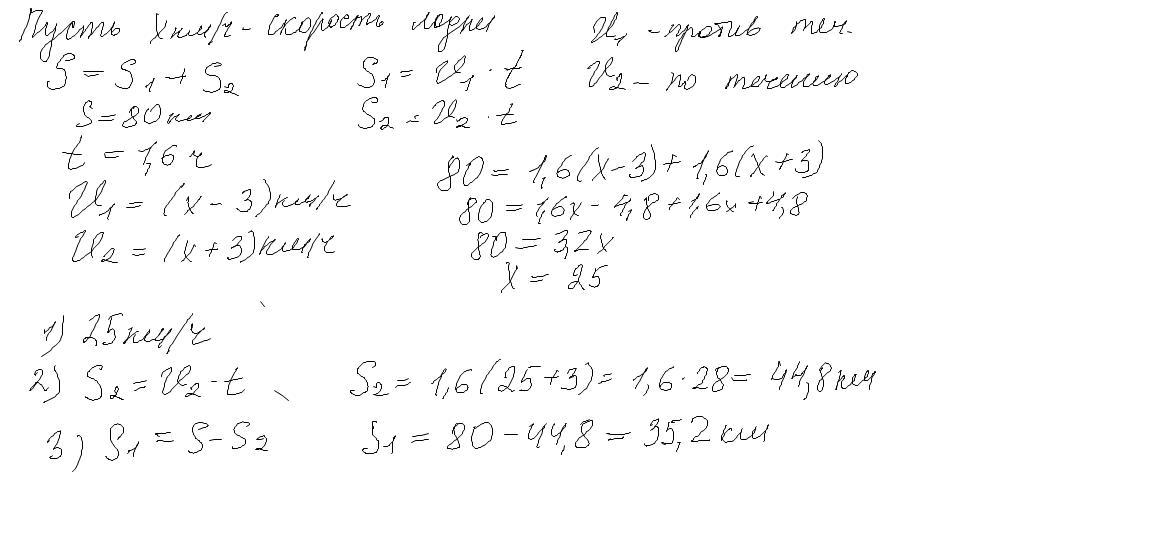 Пусть x км/ч - скорость лодки U₁ - против теч.
S = S₁ + S₂ S₁ = U₁ · t U₂ - по течению
S = 80 км S₂ = U₂ · t
t = 1,6 ч 80 = 1,6(x-3) + 1,6(x+3)
U₁ = (x - 3) км/ч 80 = 1,6x - 4,8 + 1,6x + 4,8
U₂ = (x + 3) км/ч 80 = 3,2x
x = 25
1) 25 км/ч
2) S₂ = U₂ · t S₂ = 1,6(25+3) = 1,6 · 28 = 44,8 км
3) S₁ = S - S₂ S₁ = 80 - 44,8 = 35,2 км